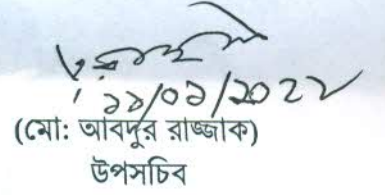 ১১/০১/২০২২
(মো: আবদুর রাজ্জাক)
উপসচিব